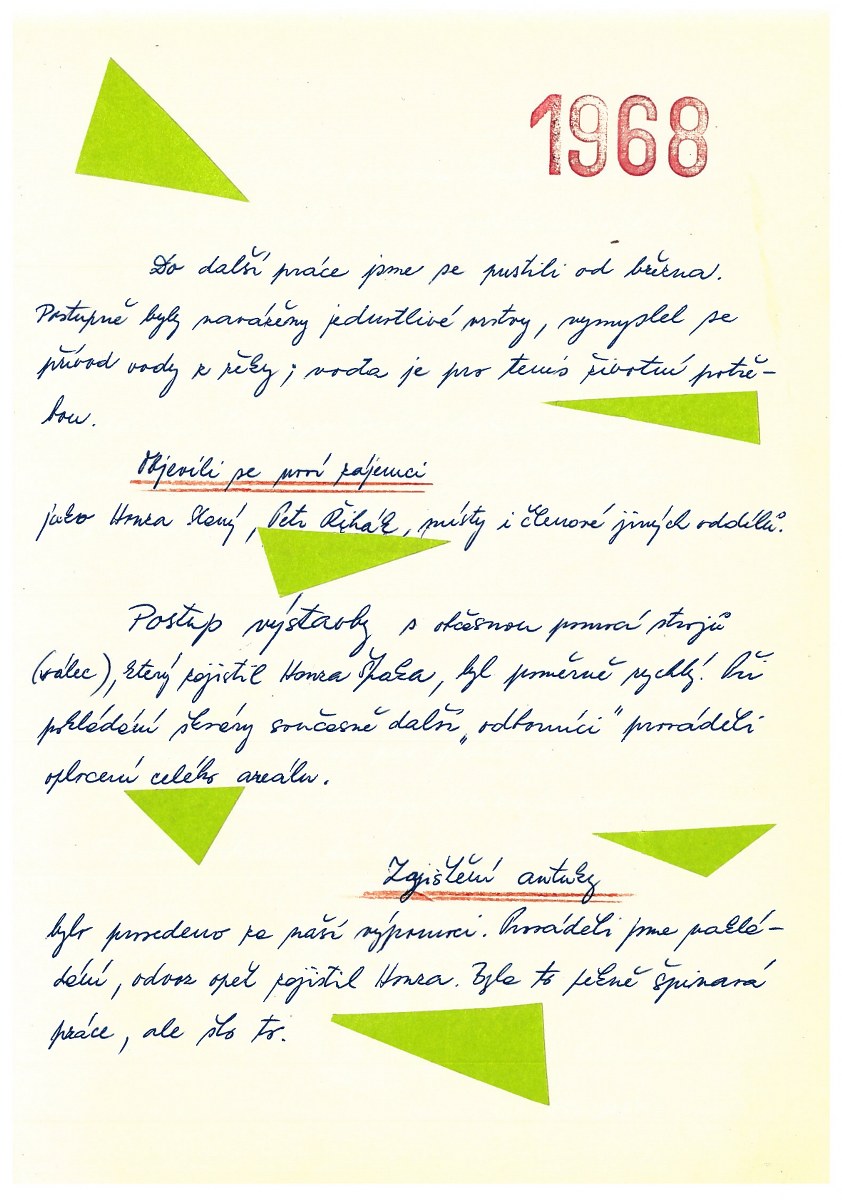 1968
Do další práce jsme se pustili od března.
Postupně byly naváženy jednotlivé vrstvy, vymyslel se
přívod vody z řeky; voda je pro tenis životní potře-
bou.
Objevili se první zájemci
jako Honza Slaný, Petr Řihák, místy i členové jiných oddílů.
Postup výstavby s občasnou pomocí strojů
(válec), který zajistil Honza Špaka, byl poměrně rychlý. Při
pokládání škváry současně další „odborníci" prováděli
oplocení celého areálu.
Zajištění antuky
bylo provedeno za naší výpomoci. Prováděli jsme naklá-
dání, odvoz opět zajistil Honza. Byla to pěkně špinavá
práce, ale šlo to.